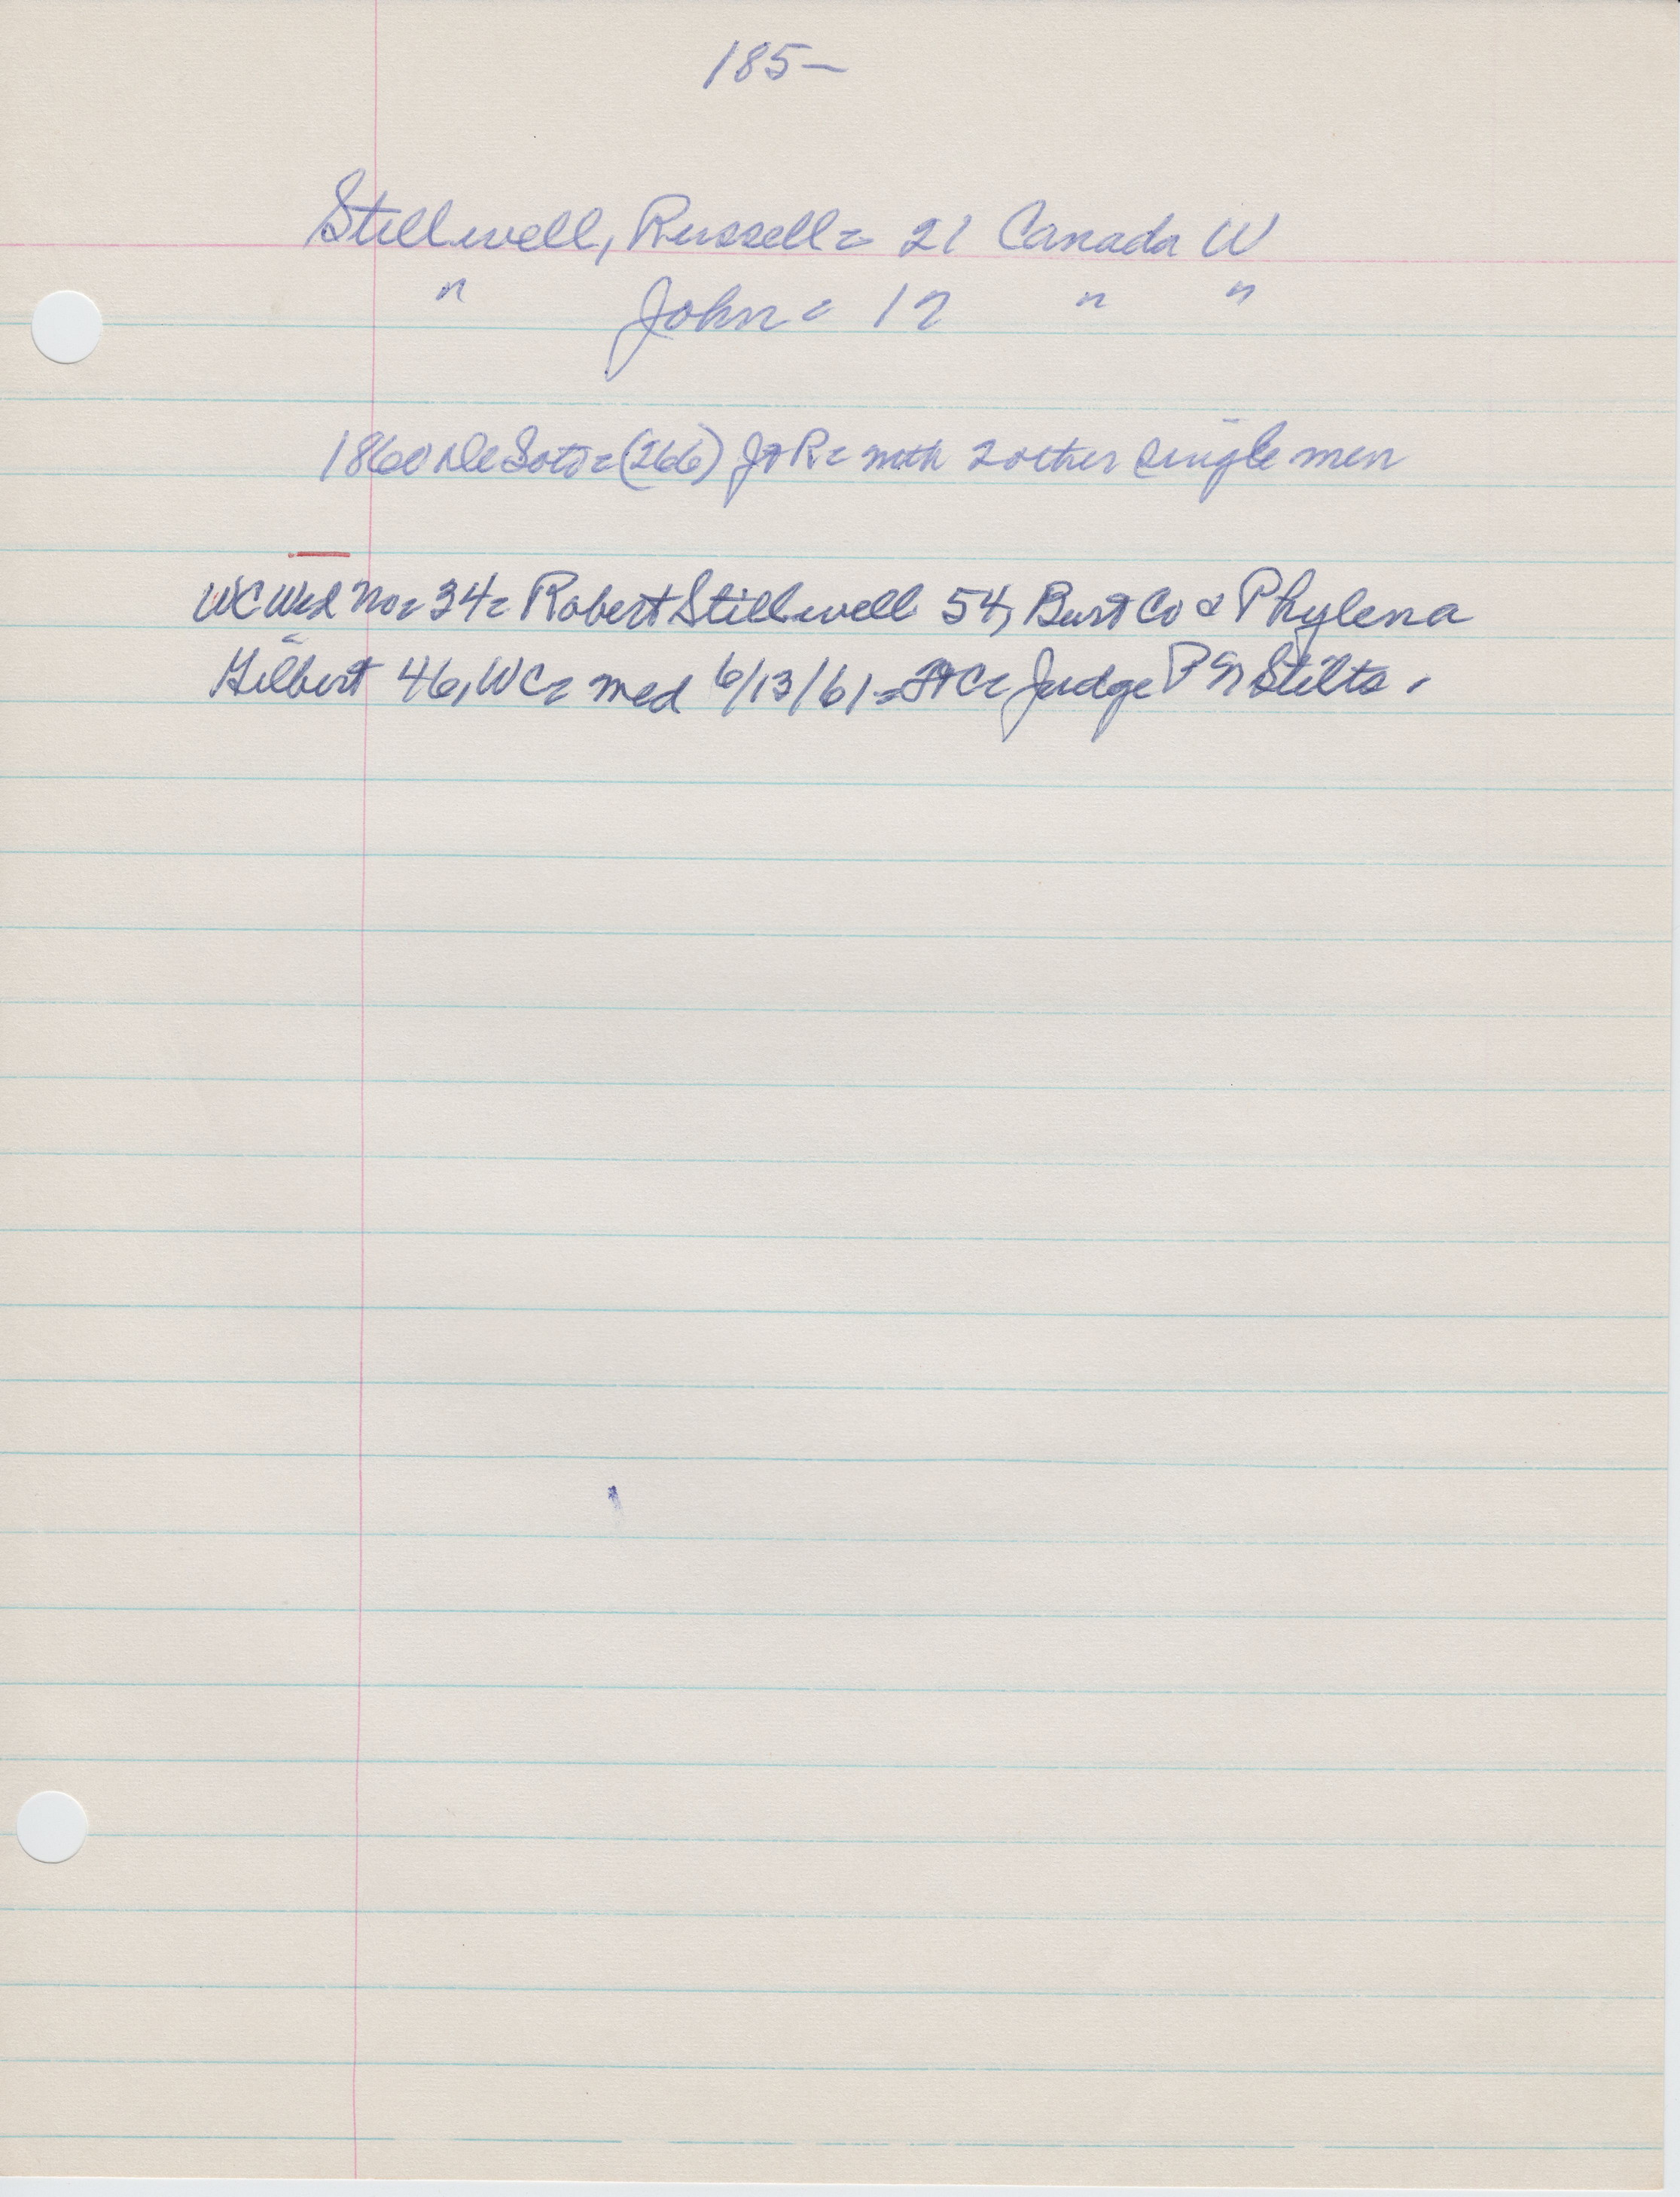 185-
Stillwell, Russell = 21 Canada W
" John = 17 " "
1860 De Soto = (266) J & R = with 2 other single men
WC Wed No = 34 = Robert Stillwell 54, Burt Co & Phylena
Gilbert 46, WC = med 6/13/61 = Ft C = Judge P G Stilts.